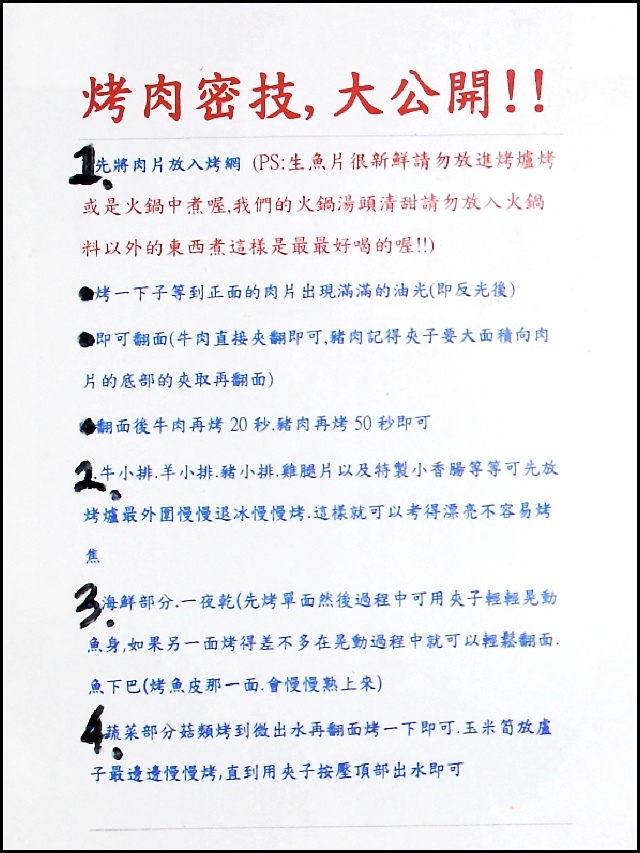 烤肉密技,大公開!!
1.先將肉片放入烤網 (PS:生魚片很新鮮請勿放進烤爐烤
或是火鍋中煮喔,我們的火鍋湯頭清甜請勿放入火鍋
料以外的東西煮這樣是最最好喝的喔!!)
●烤一下子等到正面的肉片出現滿滿的油光(即反光後)
●即可翻面(牛肉直接夾翻即可,豬肉記得夾子要大面積向肉
片的底部的夾取再翻面)
●翻面後牛肉再烤 20 秒.豬肉再烤 50 秒即可
2.牛小排.羊小排.豬小排.雞腿片以及特製小香腸等等可先放
烤爐最外圍慢慢退冰慢慢烤.這樣就可以考得漂亮不容易烤
焦
3.海鮮部分.一夜乾(先烤單面然後過程中可用夾子輕輕晃動
魚身,如果另一面烤得差不多在晃動過程中就可以輕鬆翻面.
魚下巴(烤魚皮那一面.會慢慢熟上來)
4.蔬菜部分菇類烤到微出水再翻面烤一下即可.玉米筍放盧
子最邊邊慢慢烤,直到用夾子按壓頂部出水即可